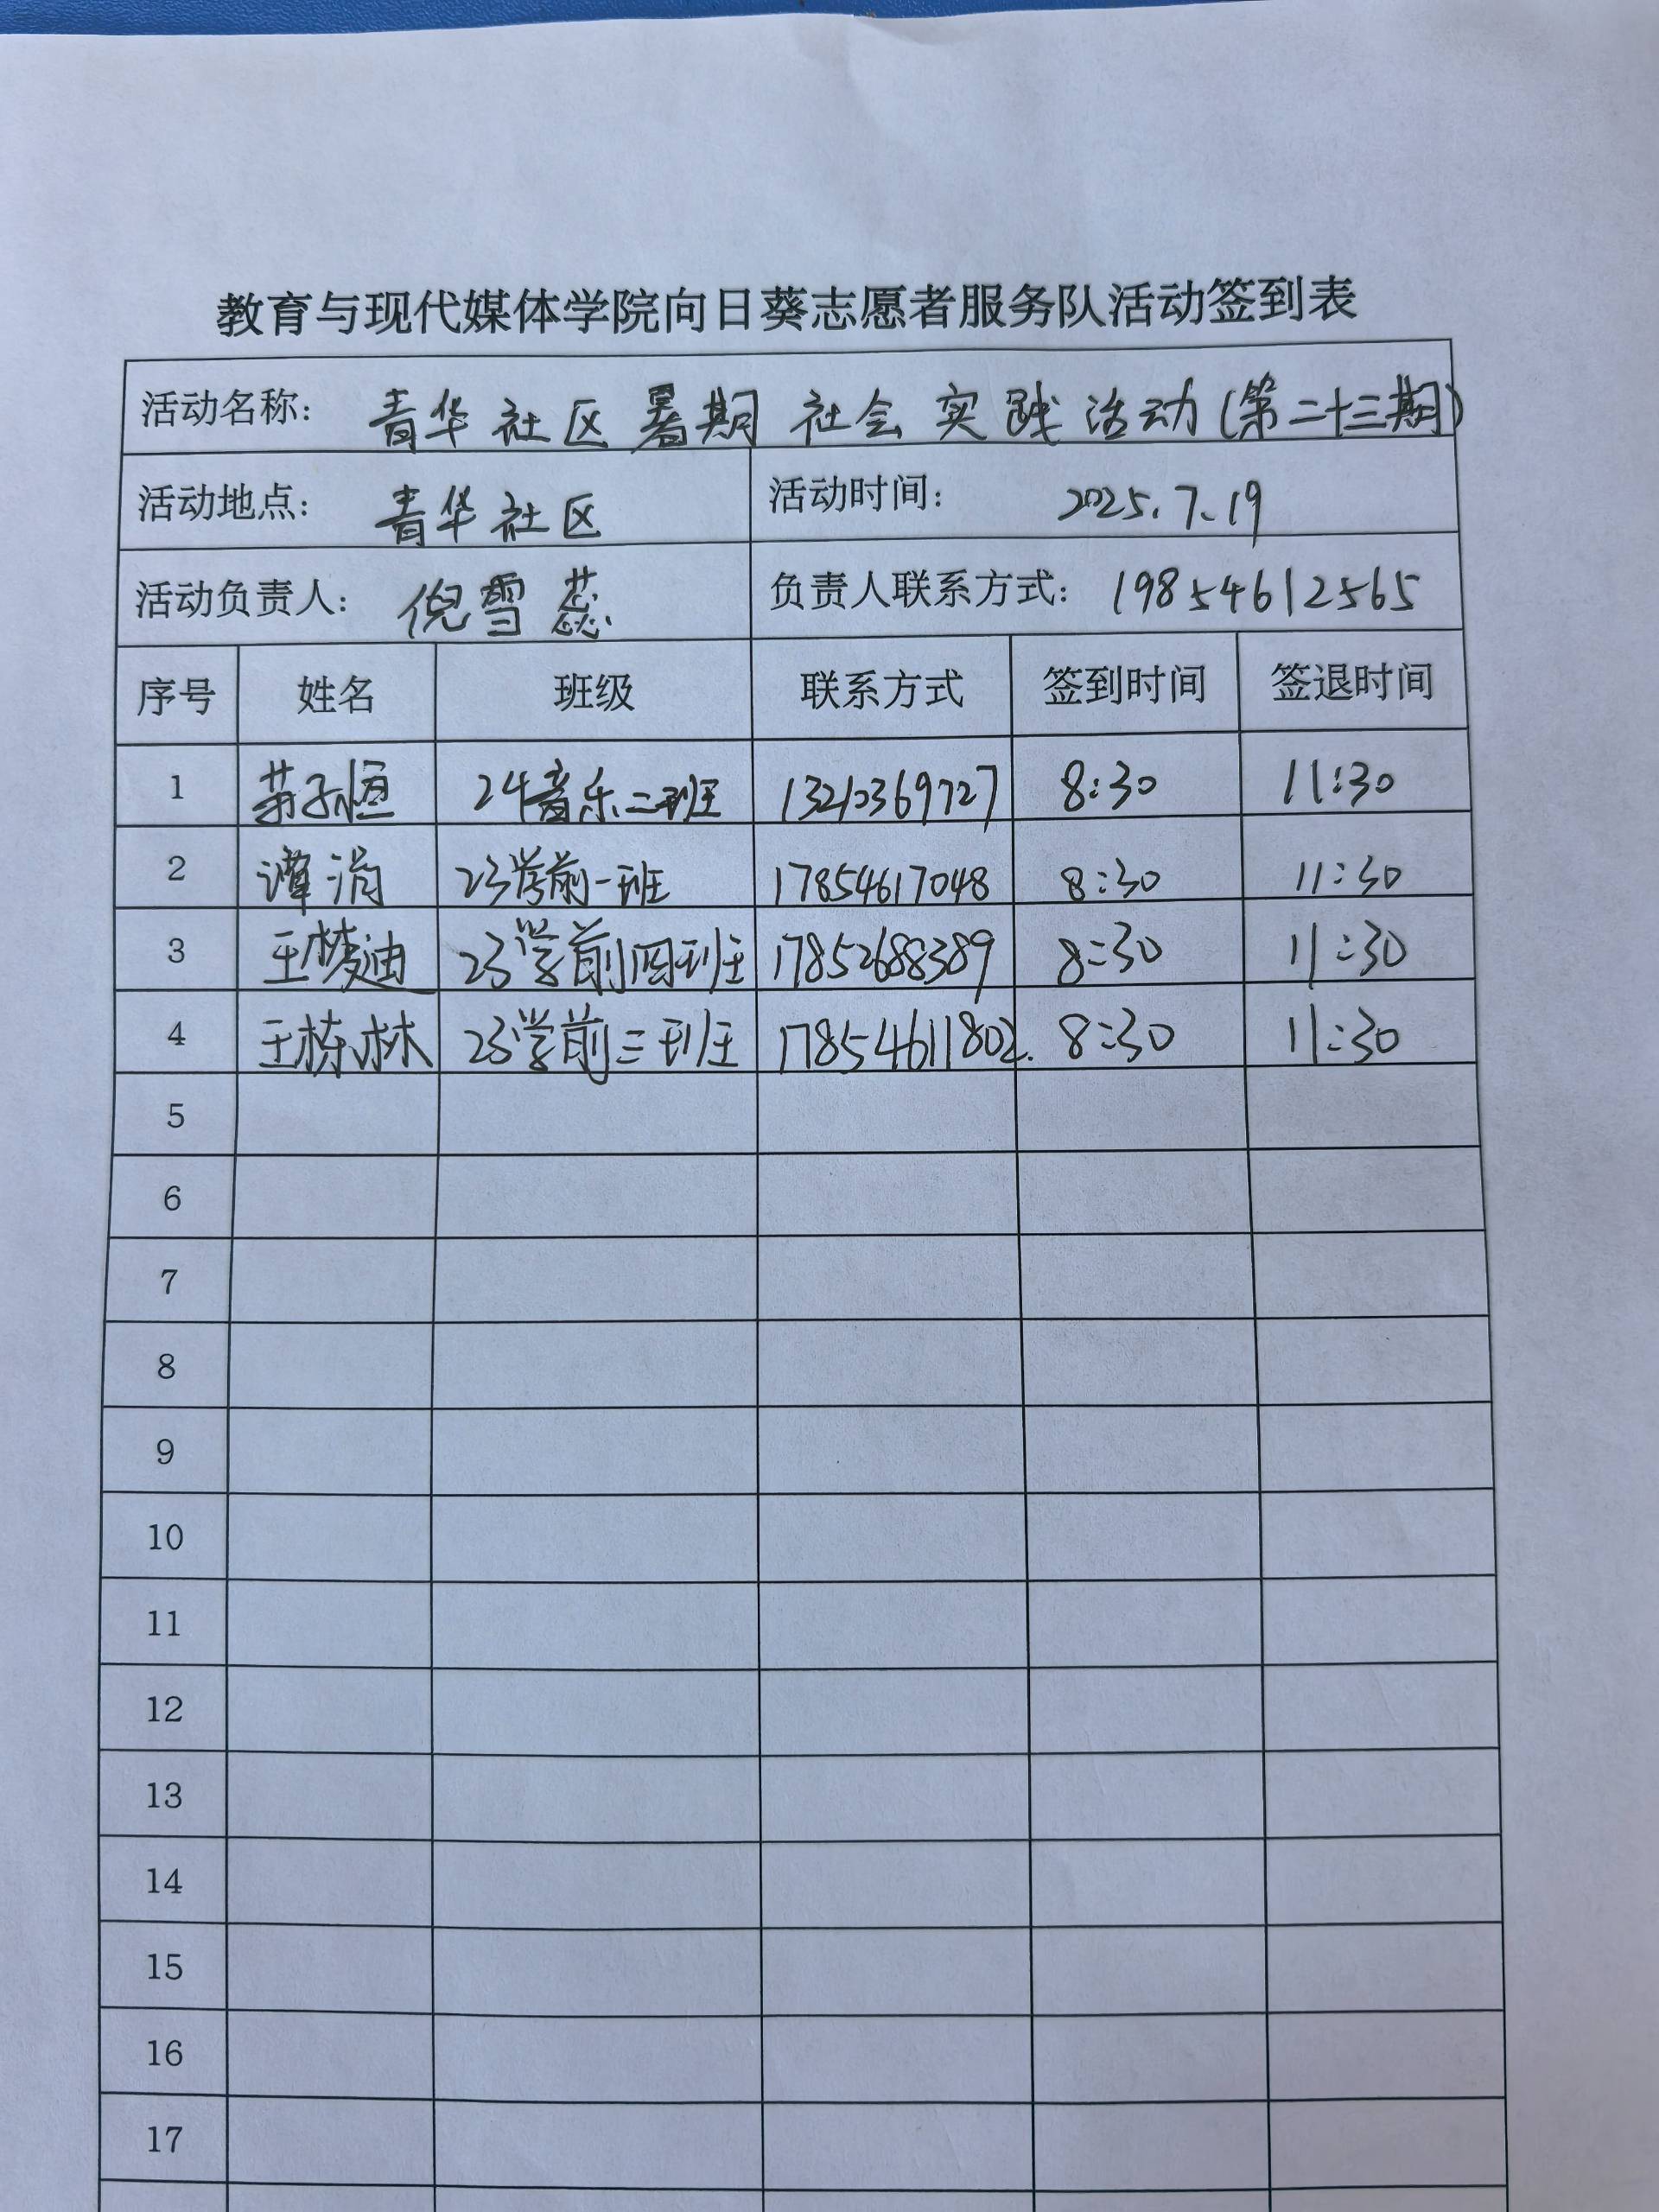 教育与现代媒体学院向日葵志愿者服务队活动签到表
活动名称: 青华社区暑期社会实践活动(第二十三期)
活动地点: 青华社区 活动时间: 2025.7.19
活动负责人: 倪雪蕊 负责人联系方式: 19854612565
序号 姓名 班级 联系方式 签到时间 签退时间
1 子恒 24音乐二班 13210369727 8:30 11:30
2 谭涓 23学前一班 17854617048 8:30 11:30
3 王梦迪 23学前四班 17852688389 8:30 11:30
4 王栋林 23学前三班 17854611802. 8:30 11:30
5
6
7
8
9
10
11
12
13
14
15
16
17